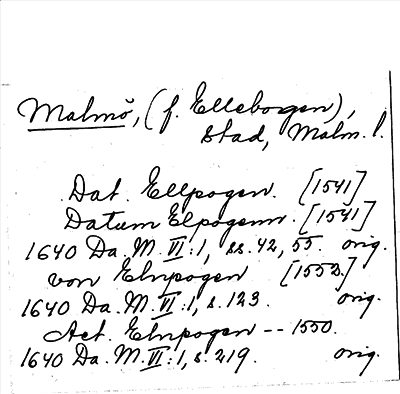 Malmö, (f. Ellebogen),
stad, Malm. l.
Dat. Ellpogen. [1541]
Datum Elpogenn. [1541]
1640 Da. M. VI:1, ss. 42, 55. orig.
von Elnpogen [1552.]
1640 Da. M. VI:1, s. 123. orig.
Act. Elnpogen -- 1550.
1640 Da. M. VI:1, s. 219. orig.